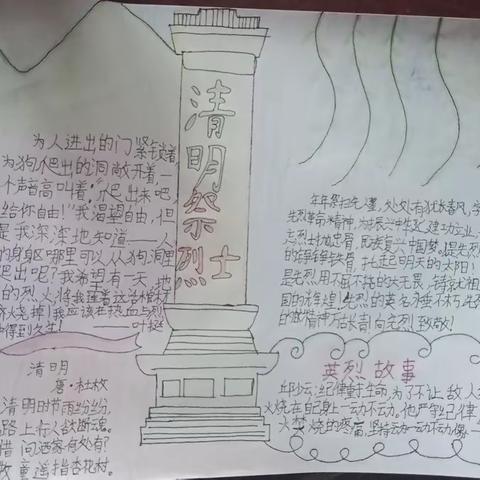 清明祭烈士
为人进出的门紧锁着
为狗爬出的洞敞开着一
个声音高叫着:"爬出来吧,
给你自由!"我渴望自由,但
是我深深地知道——人
的身躯哪里可以从狗洞里
爬出呢?我希望有一天地
的烈火将我连着这活棺材
烧掉!我应该在热血与烈
得到永生!——叶挺
清明
唐·杜牧
清明时节雨纷纷,
路上行人欲断魂。
借问酒家何处有?
牧童遥指杏花村。
年年祭扫先
先烈革命精神,为振兴中华
民族复兴中国梦,是先烈
的铮铮铁骨,扎起明天的太阳!
是先烈用不屈不挠的大无畏
国的辉煌!先烈的英名永垂不朽先烈
的精神万古长青向先烈致敬!
英烈故事
邱少云:纪律重于生命,为了不让敌人
火烧在自己身上一动不动。他严守纪律
火焚烧的疼痛,坚持一动不动像